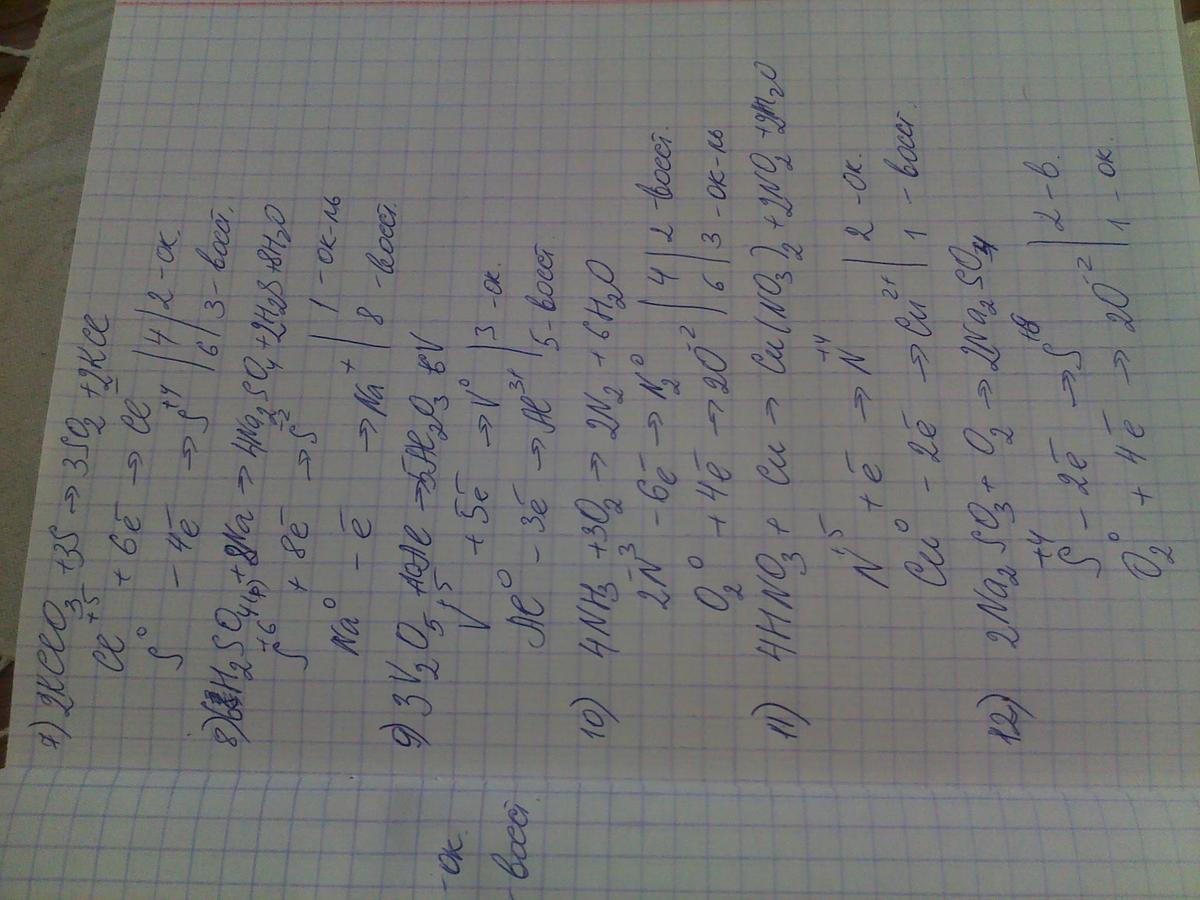 7) 2KClO3 + 3S → 3SO2 + 2KCl
Cl+5 + 6ē → Cl- | 4 | 2 - ок.
S0 - 4ē → S+4 | 6 | 3 - восст.
8) H2SO4(р) + 8Na → 4Na2SO4 + 2H2S + 8H2O
S+6 + 8ē → S-2 | 1 - ок-ль
Na0 - ē → Na+ | 8 - восст.
9) 3V2O5 + Al → 5Al2O3 6V
V+5 + 5ē → V0 | 3 - ок.
Al0 - 3ē → Al3+ | 5 - восст
10) 4NH3 + 3O2 → 2N2 + 6H2O
2N-3 - 6ē → N20 | 4 | 2 - восст.
O20 + 4ē → 2O-2 | 6 | 3 - ок-ль
11) 4HNO3 + Cu → Cu(NO3)2 + 2NO2 + 2H2O
N+5 + ē → N+4 | 2 - ок.
Cu0 - 2ē → Cu2+ | 1 - восст
12) 2Na2SO3 + O2 → 2Na2SO4
S+4 - 2ē → S+8 | 2 - в.
O20 + 4ē → 2O-2 | 1 - ок.
- ок.
- восст